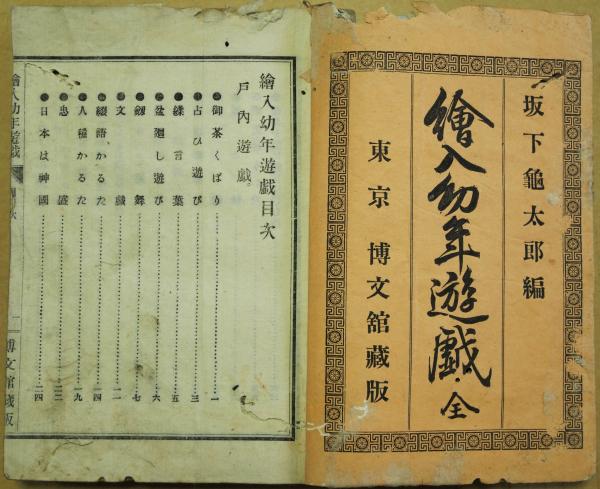 坂下龜太郎編
繪入幼年遊戯 全
東京 博文舘藏版
繪入幼年遊戯目次
戸内遊戯。
御茶くばり……一
占ひ遊び……三
蝶言葉……五
盆廻し遊び……六
劔舞……七
文戯……一一
綴語かるた……一四
人種かるた……一九
忠盛……二二
日本は神國……二四
繪入幼年遊戯
目次
一
博文舘藏版